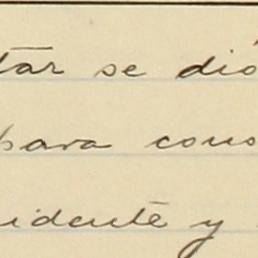 tar se dió
para cons
idente y